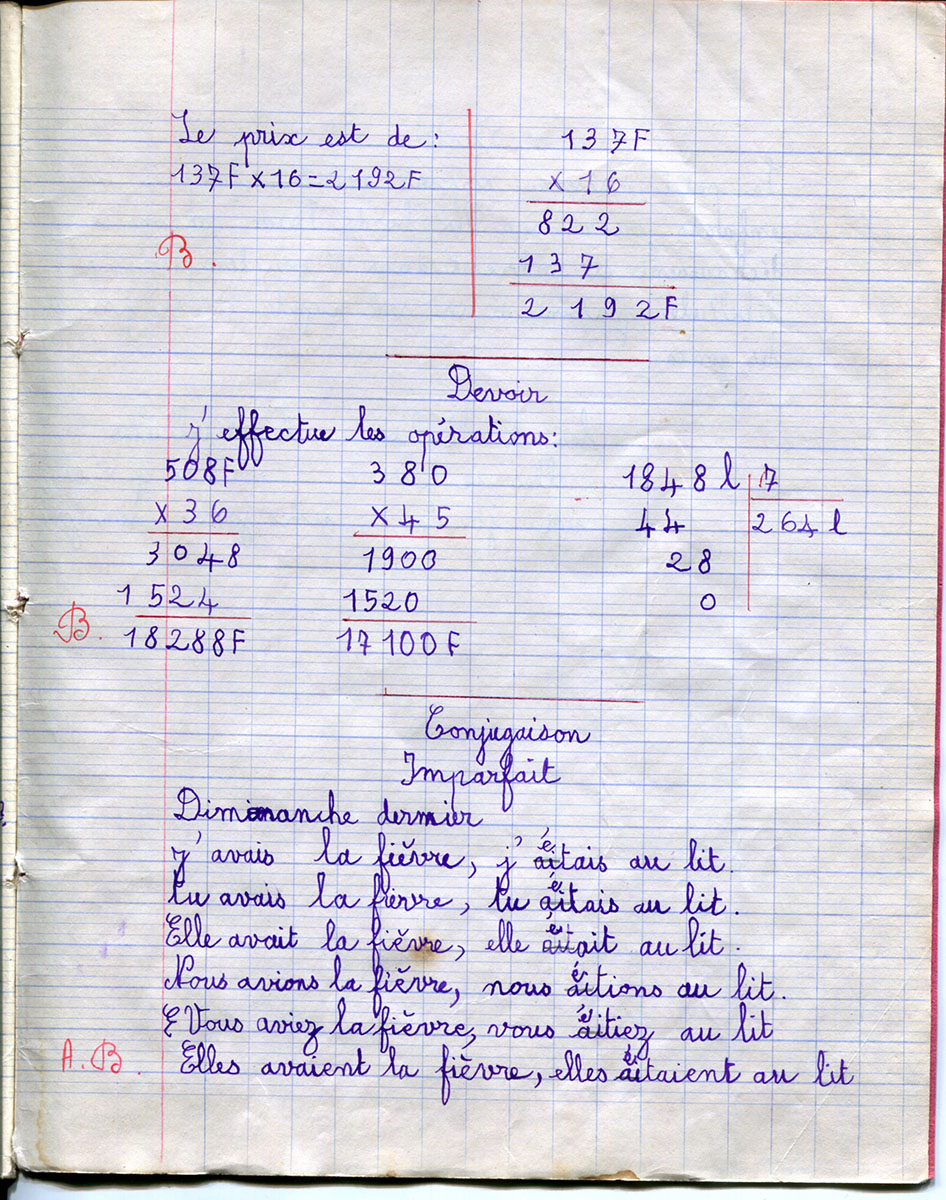 Le prix est de :
137F × 16 = 2192F
B.
137F
× 16
822
137
2192F
Devoir
j'effectue les opérations :
508F
× 36
3048
1524
18288F
B.
380
× 45
1900
1520
17100F
1848 l 7
44 264 l
28
0
Conjugaison
Imparfait
Dimanche dernier
j'avais la fièvre, j'étais au lit.
tu avais la fièvre, tu étais au lit.
Elle avait la fièvre, elle était au lit.
Nous avions la fièvre, nous étions au lit.
Vous aviez la fièvre, vous étiez au lit
A.B. Elles avaient la fièvre, elles étaient au lit